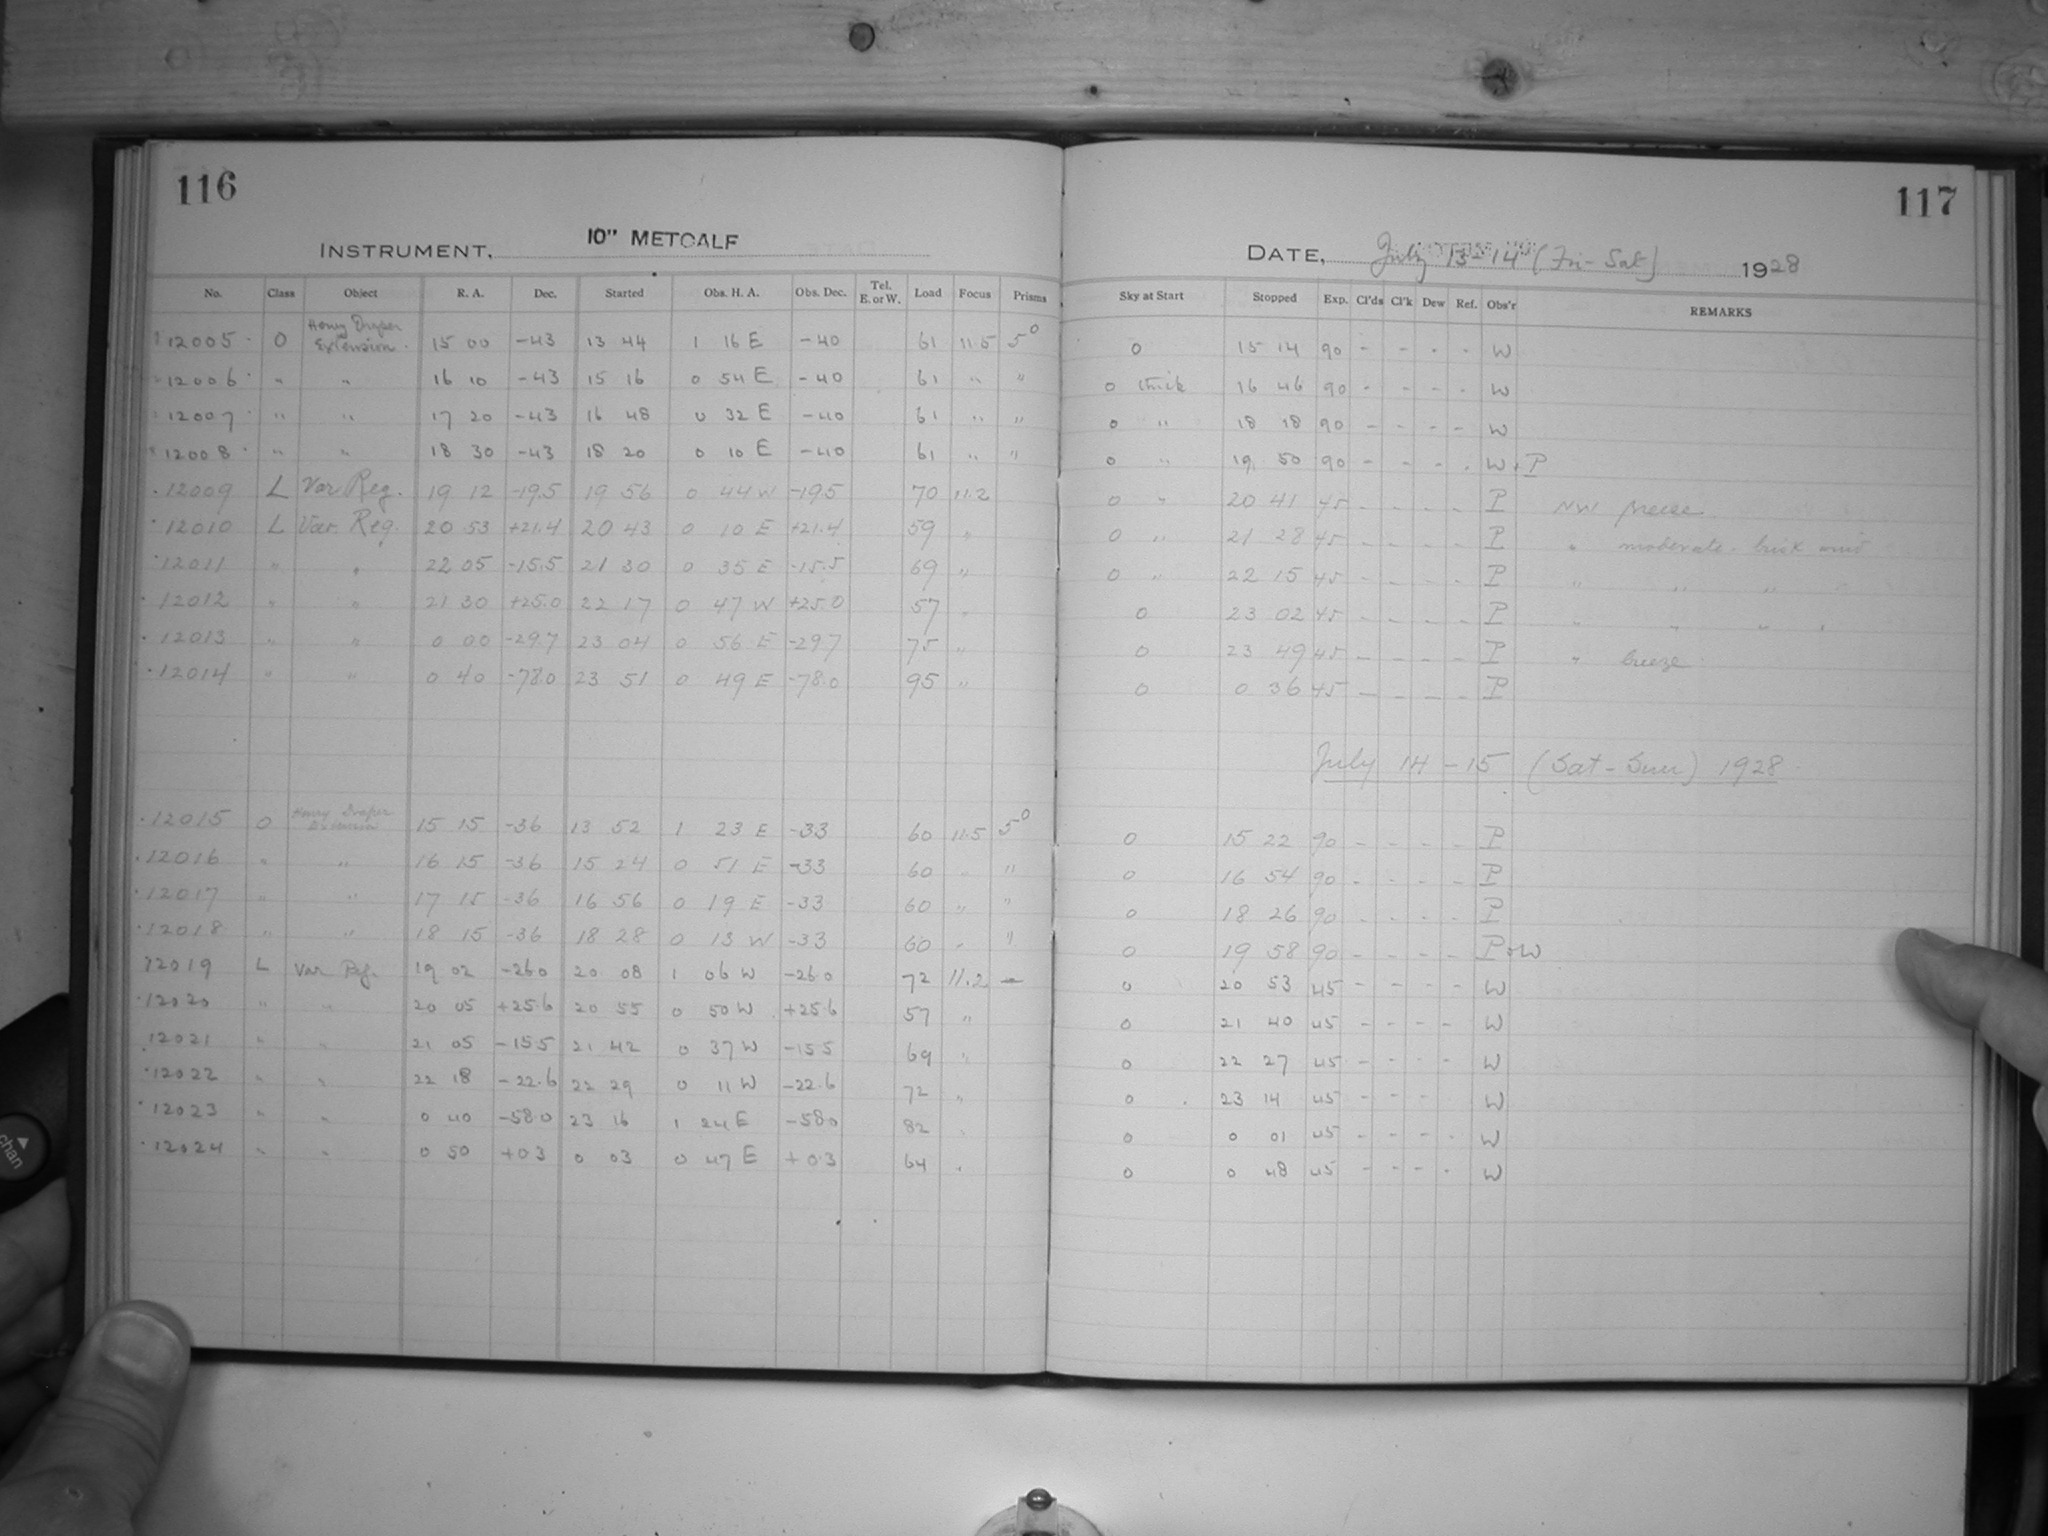 116
INSTRUMENT, 10" METCALF
No. Class Object R. A. Dec. Started Obs. H. A. Obs. Dec. Tel. E. or W. Load Focus Prisms
12005 O Henry Draper Extension 15 00 -43 13 44 1 16 E -40 61 11.5 5°
12006 " " 16 10 -43 15 16 0 54 E -40 61 " "
12007 " " 17 20 -43 16 48 0 32 E -40 61 " "
12008 " " 18 30 -43 18 20 0 10 E -40 61 " "
12009 L Var Reg. 19 12 -19.5 19 56 0 44 W -19.5 70 11.2
12010 L Var. Reg. 20 53 +21.4 20 43 0 10 E +21.4 59 "
12011 " " 22 05 -15.5 21 30 0 35 E -15.5 69 "
12012 " " 21 30 +25.0 22 17 0 47 W +25.0 57 "
12013 " " 0 00 -29.7 23 04 0 56 E -29.7 75 "
12014 " " 0 40 -78.0 23 51 0 49 E -78.0 95 "
12015 O Henry Draper Extension 15 15 -36 13 52 1 23 E -33 60 11.5 5°
12016 " " 16 15 -36 15 24 0 51 E -33 60 " "
12017 " " 17 15 -36 16 56 0 19 E -33 60 " "
12018 " " 18 15 -36 18 28 0 13 W -33 60 " "
12019 L Var Reg. 19 02 -26.0 20 08 1 06 W -26.0 72 11.2 -
12020 " " 20 05 +25.6 20 55 0 50 W +25.6 57 "
12021 " " 21 05 -15.5 21 42 0 37 W -15.5 69 "
12022 " " 22 18 -22.6 22 29 0 11 W -22.6 72 "
12023 " " 0 40 -58.0 23 16 1 24 E -58.0 82 "
12024 " " 0 50 +0.3 0 03 0 47 E +0.3 64 "
117
DATE, July 13-14 (Fri-Sat) 1928
Sky at Start Stopped Exp. Cl'ds Cl'k Dew Ref. Obs'r REMARKS
0 15 14 90 - - - - W
0 thick 16 46 90 - - - - W
0 " 18 18 90 - - - - W
0 " 19 50 90 - - - - W + P
0 " 20 41 45 - - - - P NW breeze
0 " 21 28 45 - - - - P " moderate - brisk wind
0 " 22 15 45 - - - - P " " " "
0 23 02 45 - - - - P " " " "
0 23 49 45 - - - - P " breeze
0 0 36 45 - - - - P
July 14-15 (Sat-Sun) 1928
0 15 22 90 - - - - P
0 16 54 90 - - - - P
0 18 26 90 - - - - P
0 19 58 90 - - - - P + W
0 20 53 45 - - - - W
0 21 40 45 - - - - W
0 22 27 45 - - - - W
0 23 14 45 - - - - W
0 0 01 45 - - - - W
0 0 48 45 - - - - W